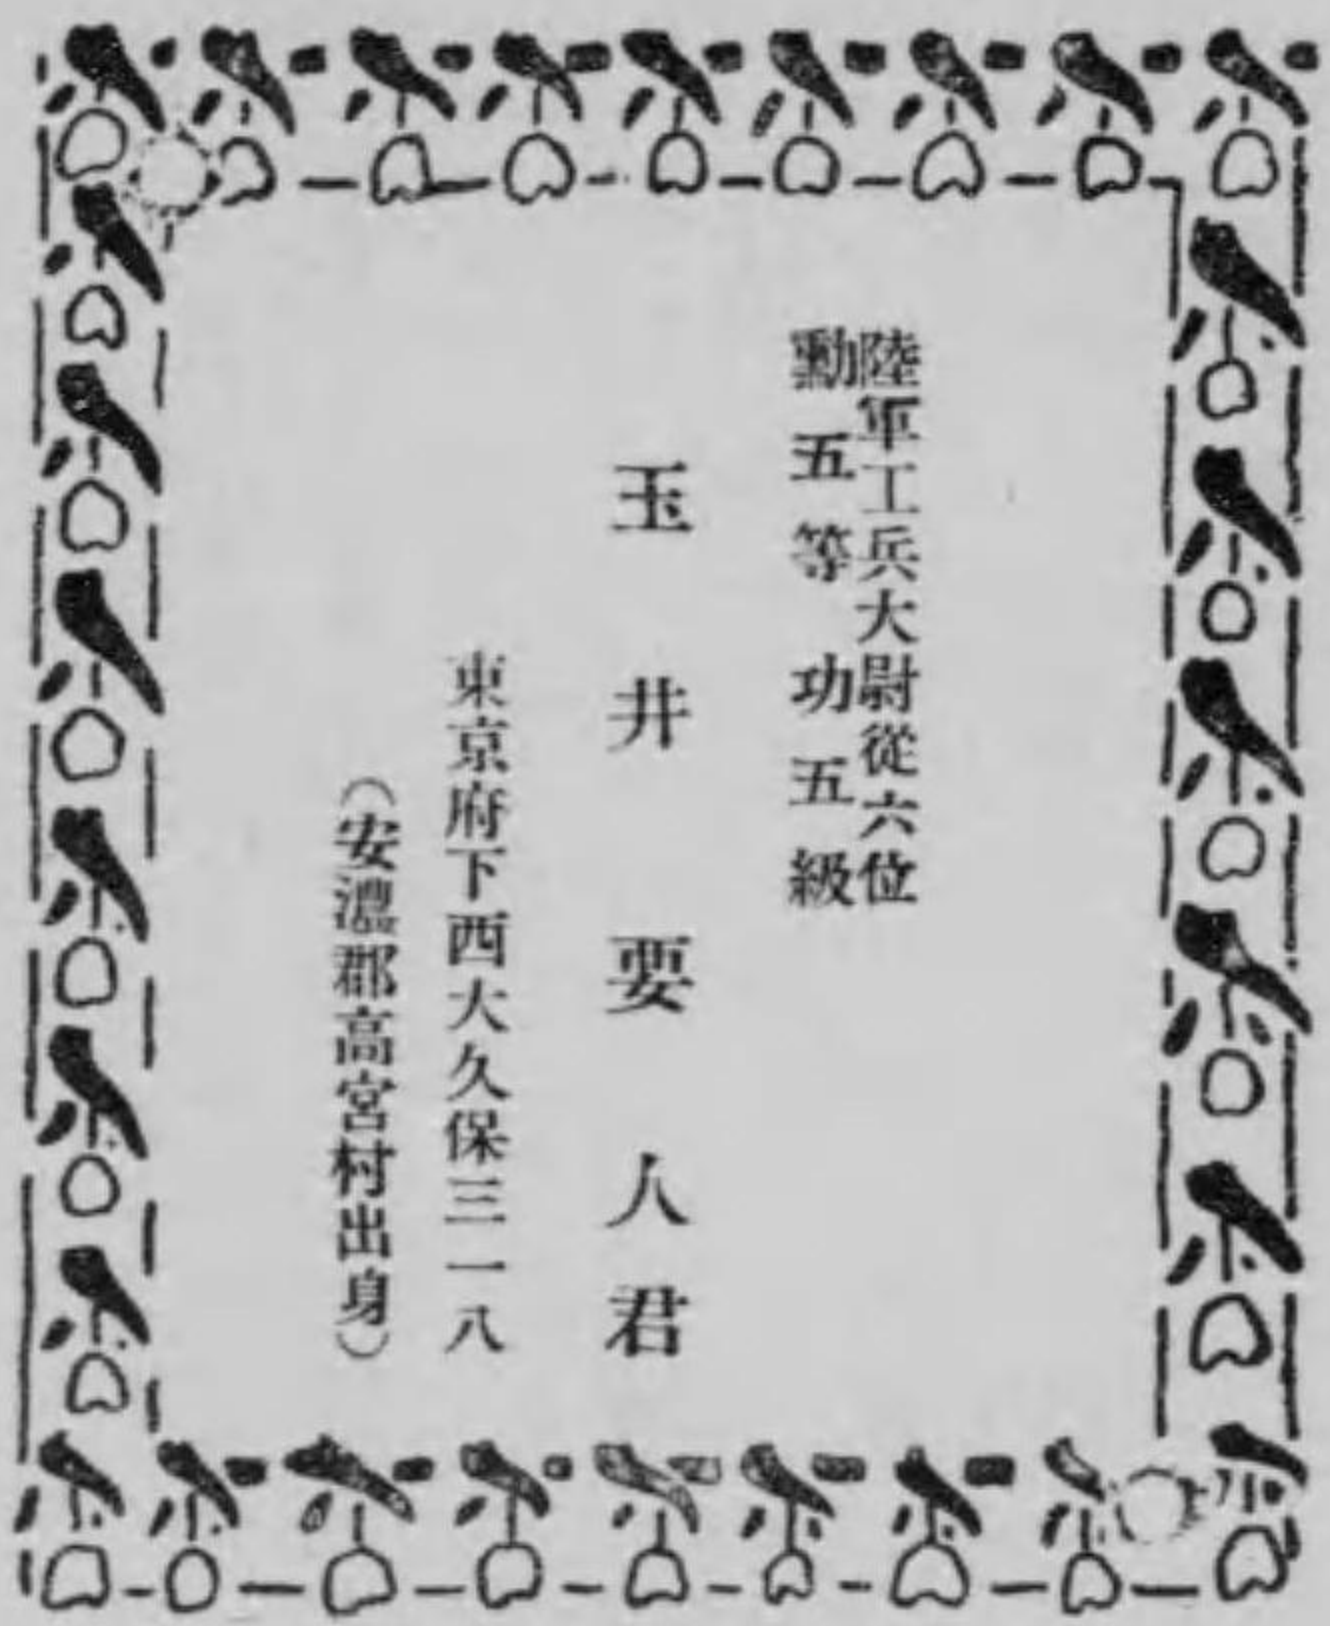 陸軍工兵大尉從六位
勳五等功五級
玉井要人君
東京府下西大久保三一八
（安濃郡高宮村出身）